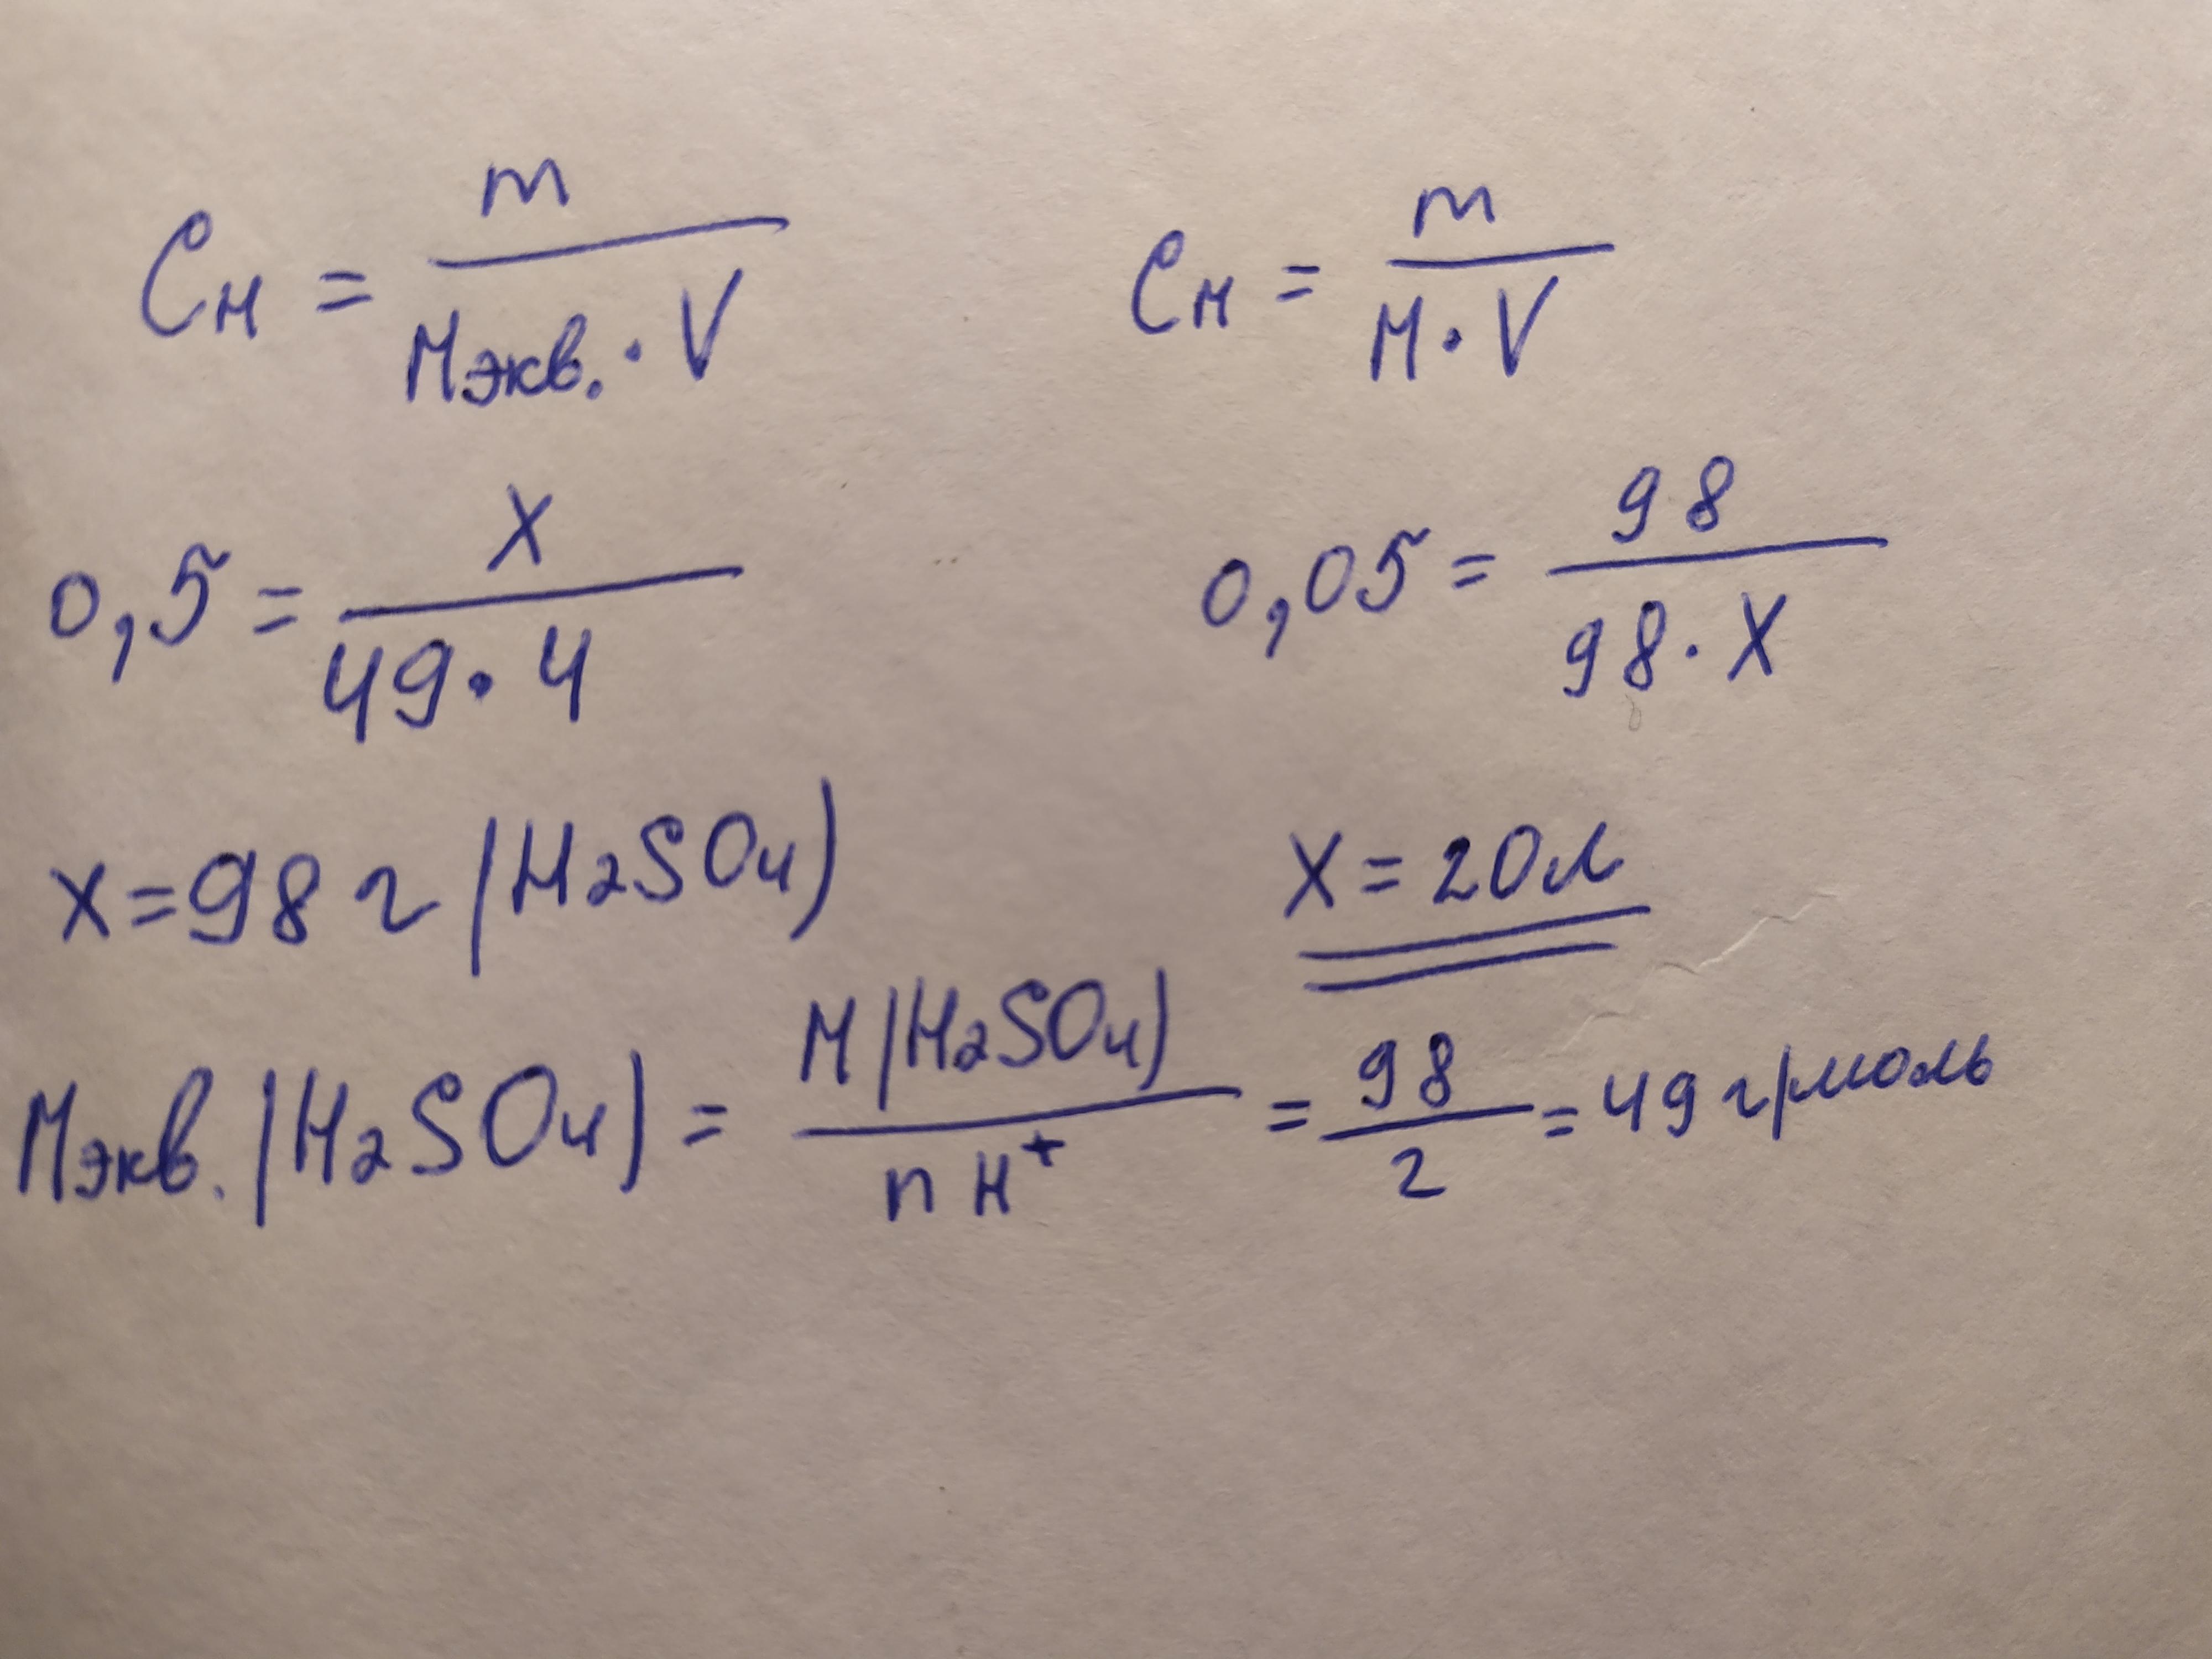 Cн = m / Mэкв. · V
Cм = m / M · V
0,5 = x / 49 · 4
0,05 = 98 / 98 · x
x = 98 г (H2SO4)
x = 20 л
Mэкв. (H2SO4) = M (H2SO4) / n H+ = 98 / 2 = 49 г/моль